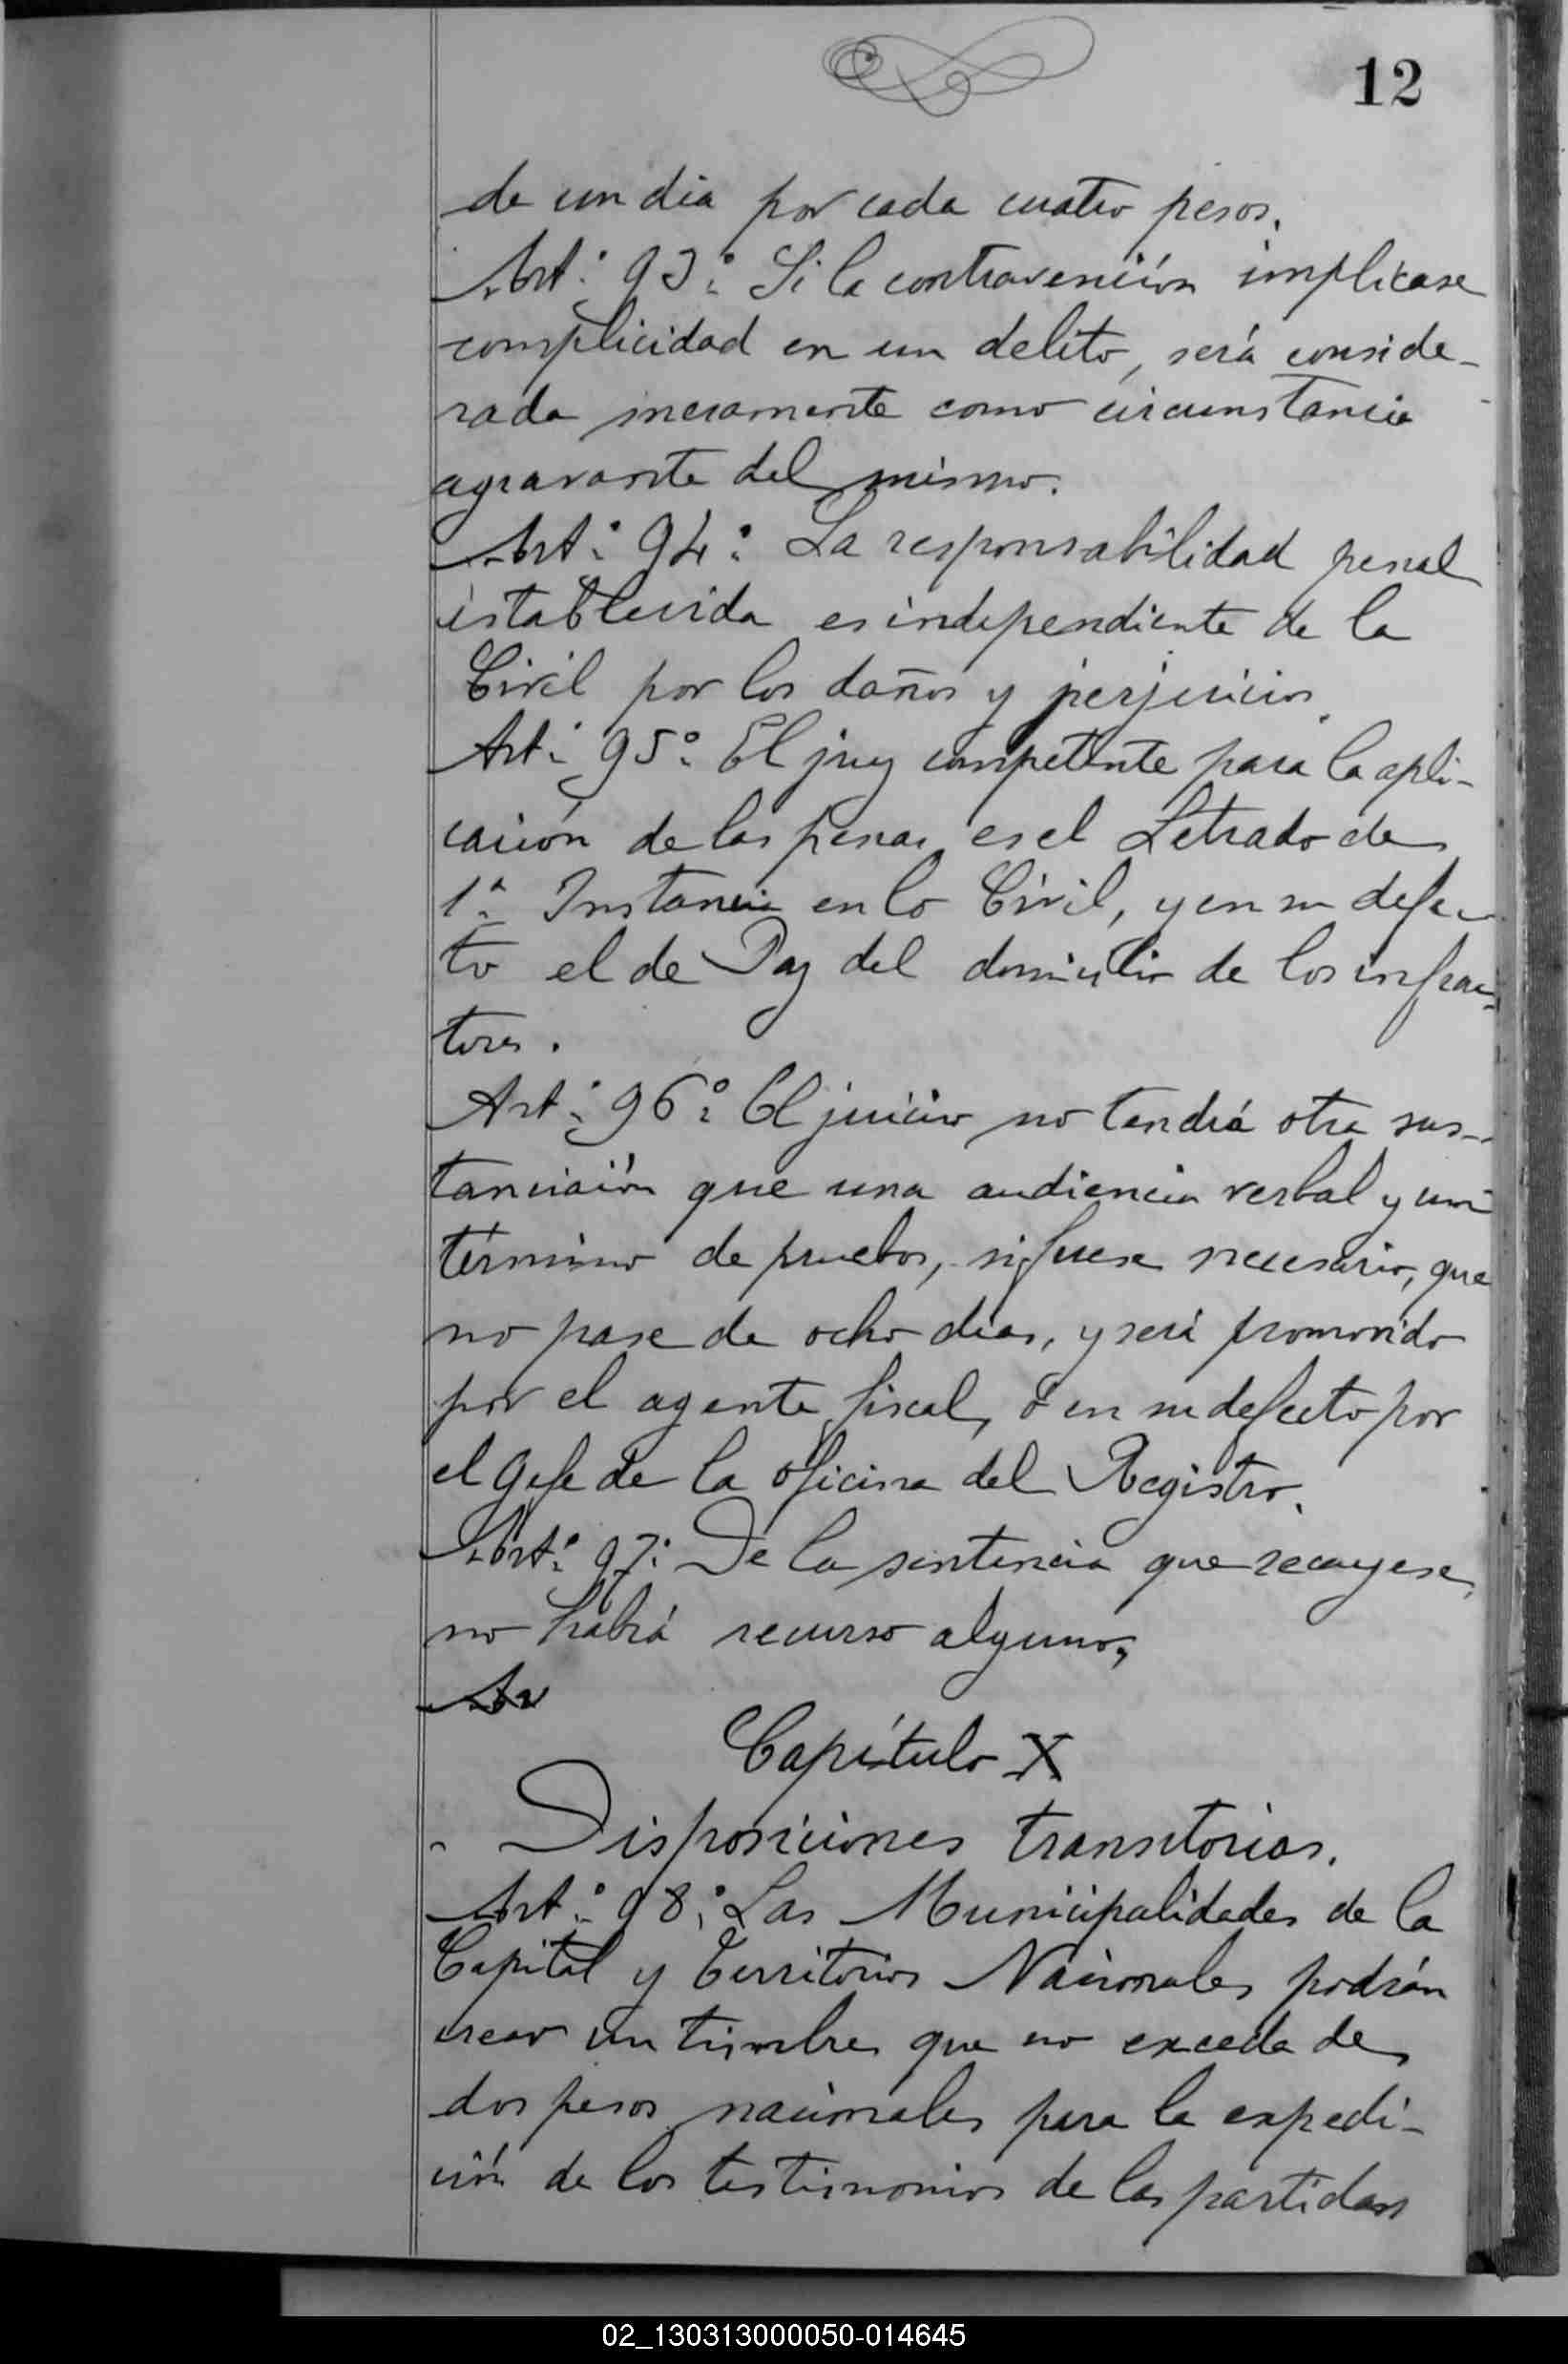 12
de un dia por cada cuatro pesos.
Art.º 93.º Si la contravención implicase
complicidad en un delito, será conside-
rada meramente como circunstancia
agravante del mismo.
Art.º 94.º La responsabilidad penal
establecida es independiente de la
Civil por los daños y perjuicios.
Art.º 95.º El juez competente para la apli-
cación de las penas es el Letrado de
1.ª Instancia en lo Civil, y en su defec-
to el de Paz del domicilio de los infrac-
tores.
Art.º 96.º El juicio no tendrá otra sus-
tanciación que una audiencia verbal y un
término de pruebas, si fuese necesario, que
no pase de ocho dias, y será promovido
por el agente fiscal, ó en su defecto por
el Gefe de la oficina del Registro.
Art.º 97.º De la sentencia que recayese,
no habrá recurso alguno,
Ar
Capítulo X
Disposiciones transitorias.
Art.º 98.º Las Municipalidades de la
Capital y Territorios Nacionales podrán
crear un timbre que no exceda de
dos pesos nacionales para la expedi-
ción de los testimonios de las partidas
02_130313000050-014645